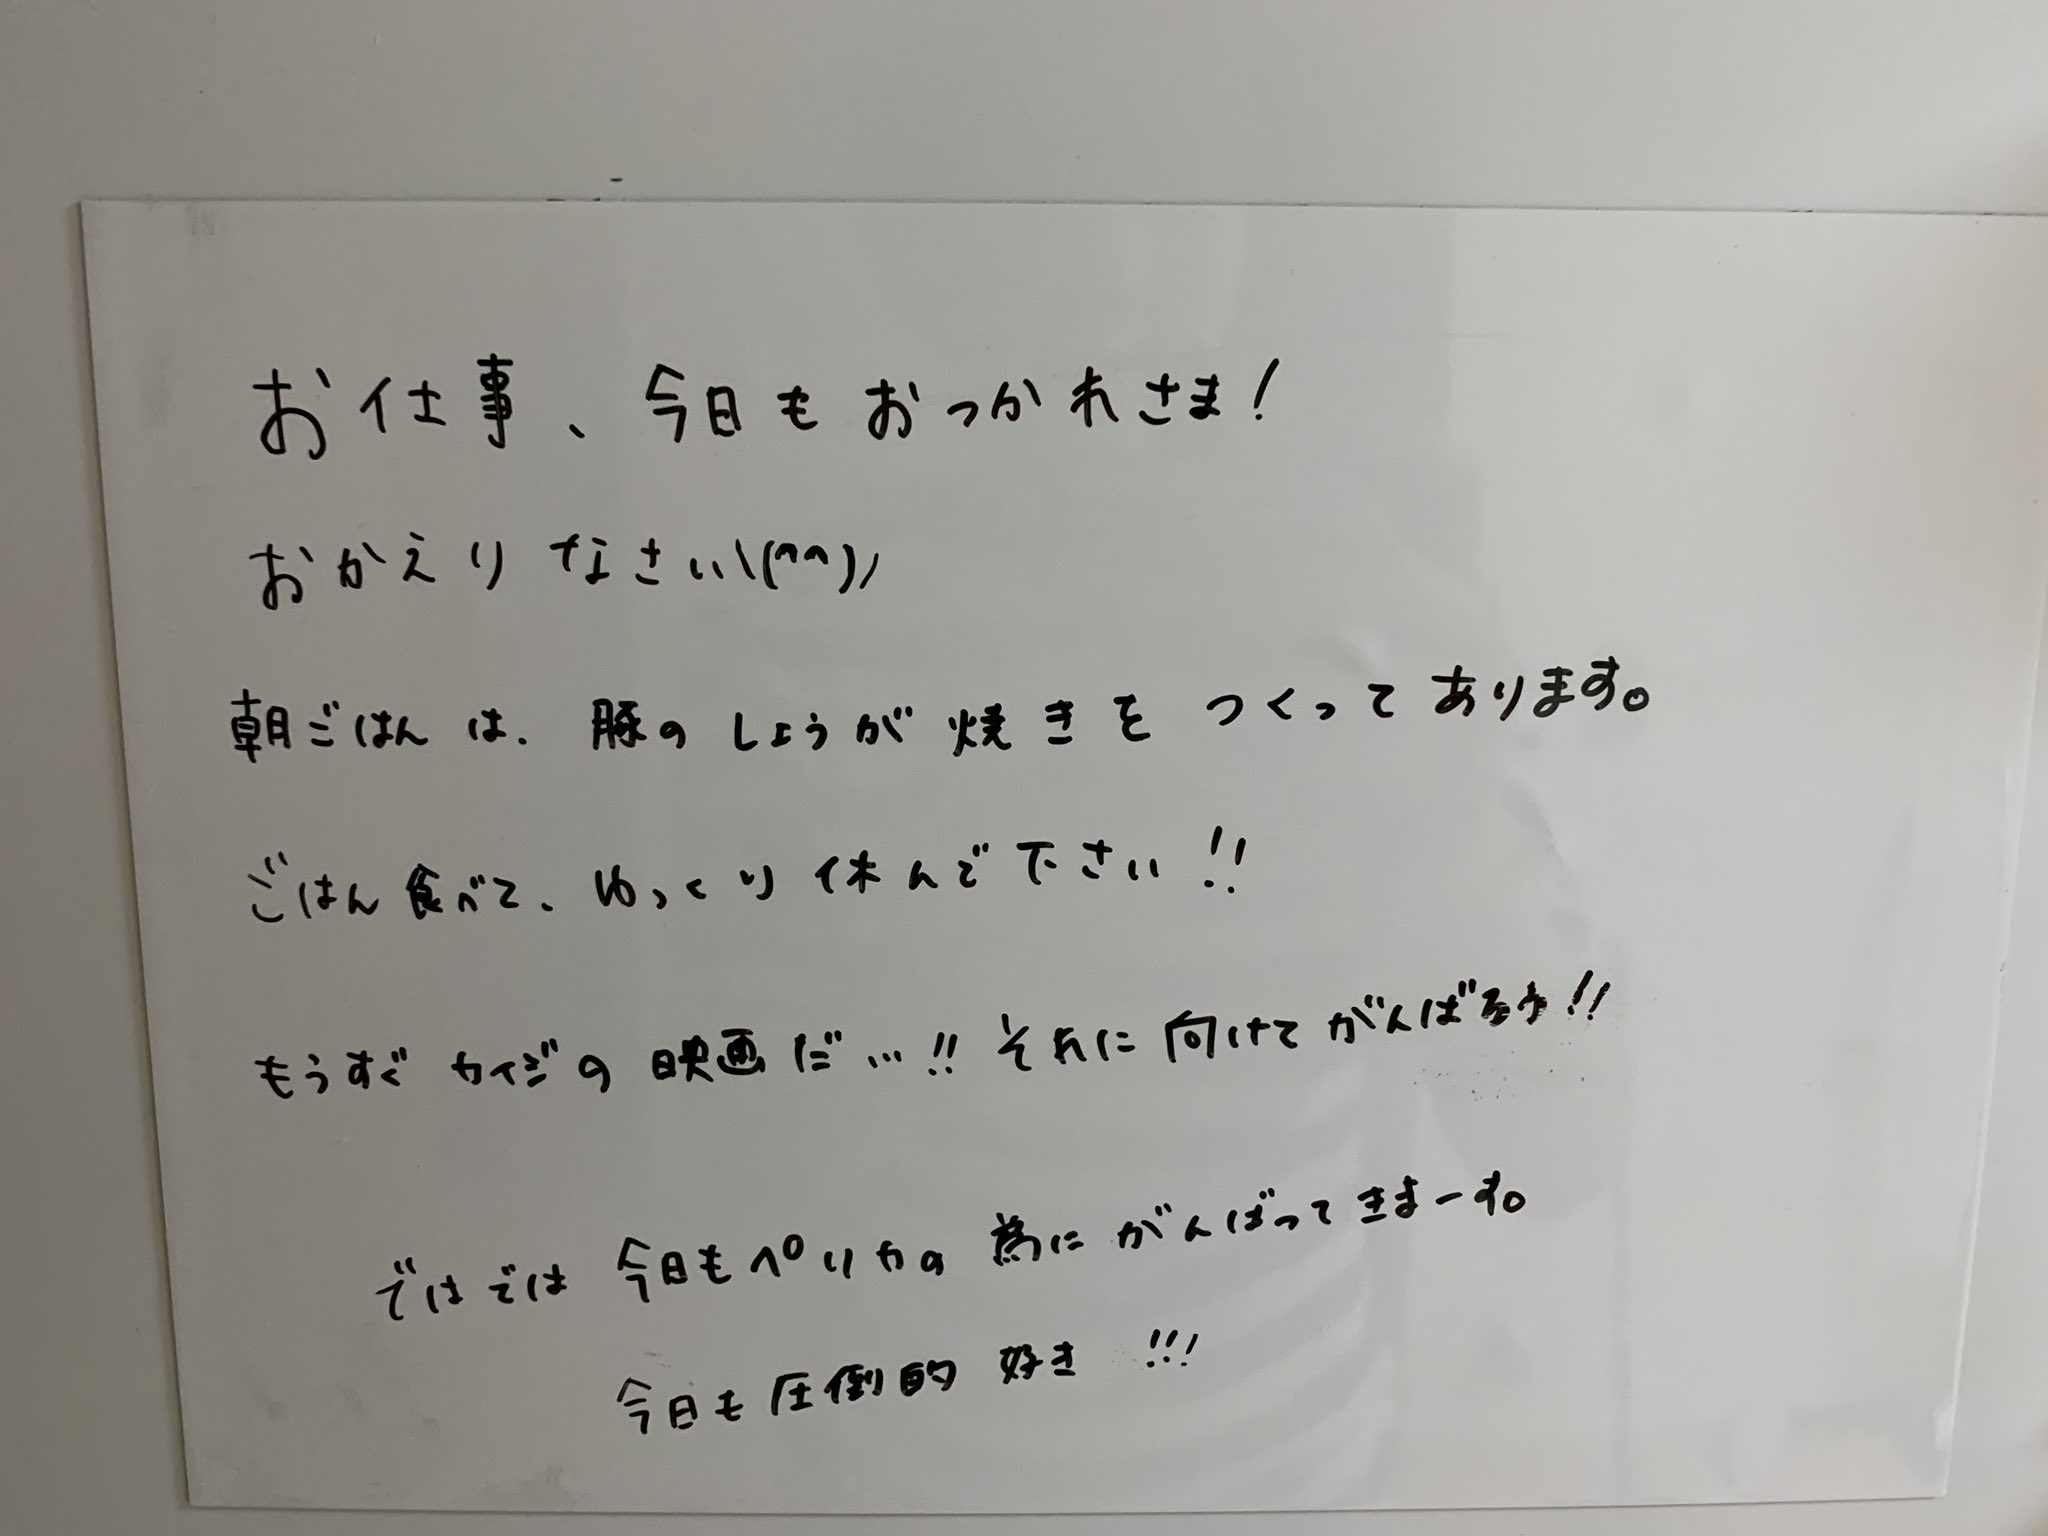 お仕事、今日もおっかれさま!
おかえりなさい\(^^)/
朝ごはんは、豚のしょうが焼きをつくってあります。
ごはん食べて、ゆっくり休んで下さい!!
もうすぐカイジの映画だ…!! それに向けてがんばろう!!
ではでは今日もペリカの為にがんばってきまーす。
今日も圧倒的好き!!!